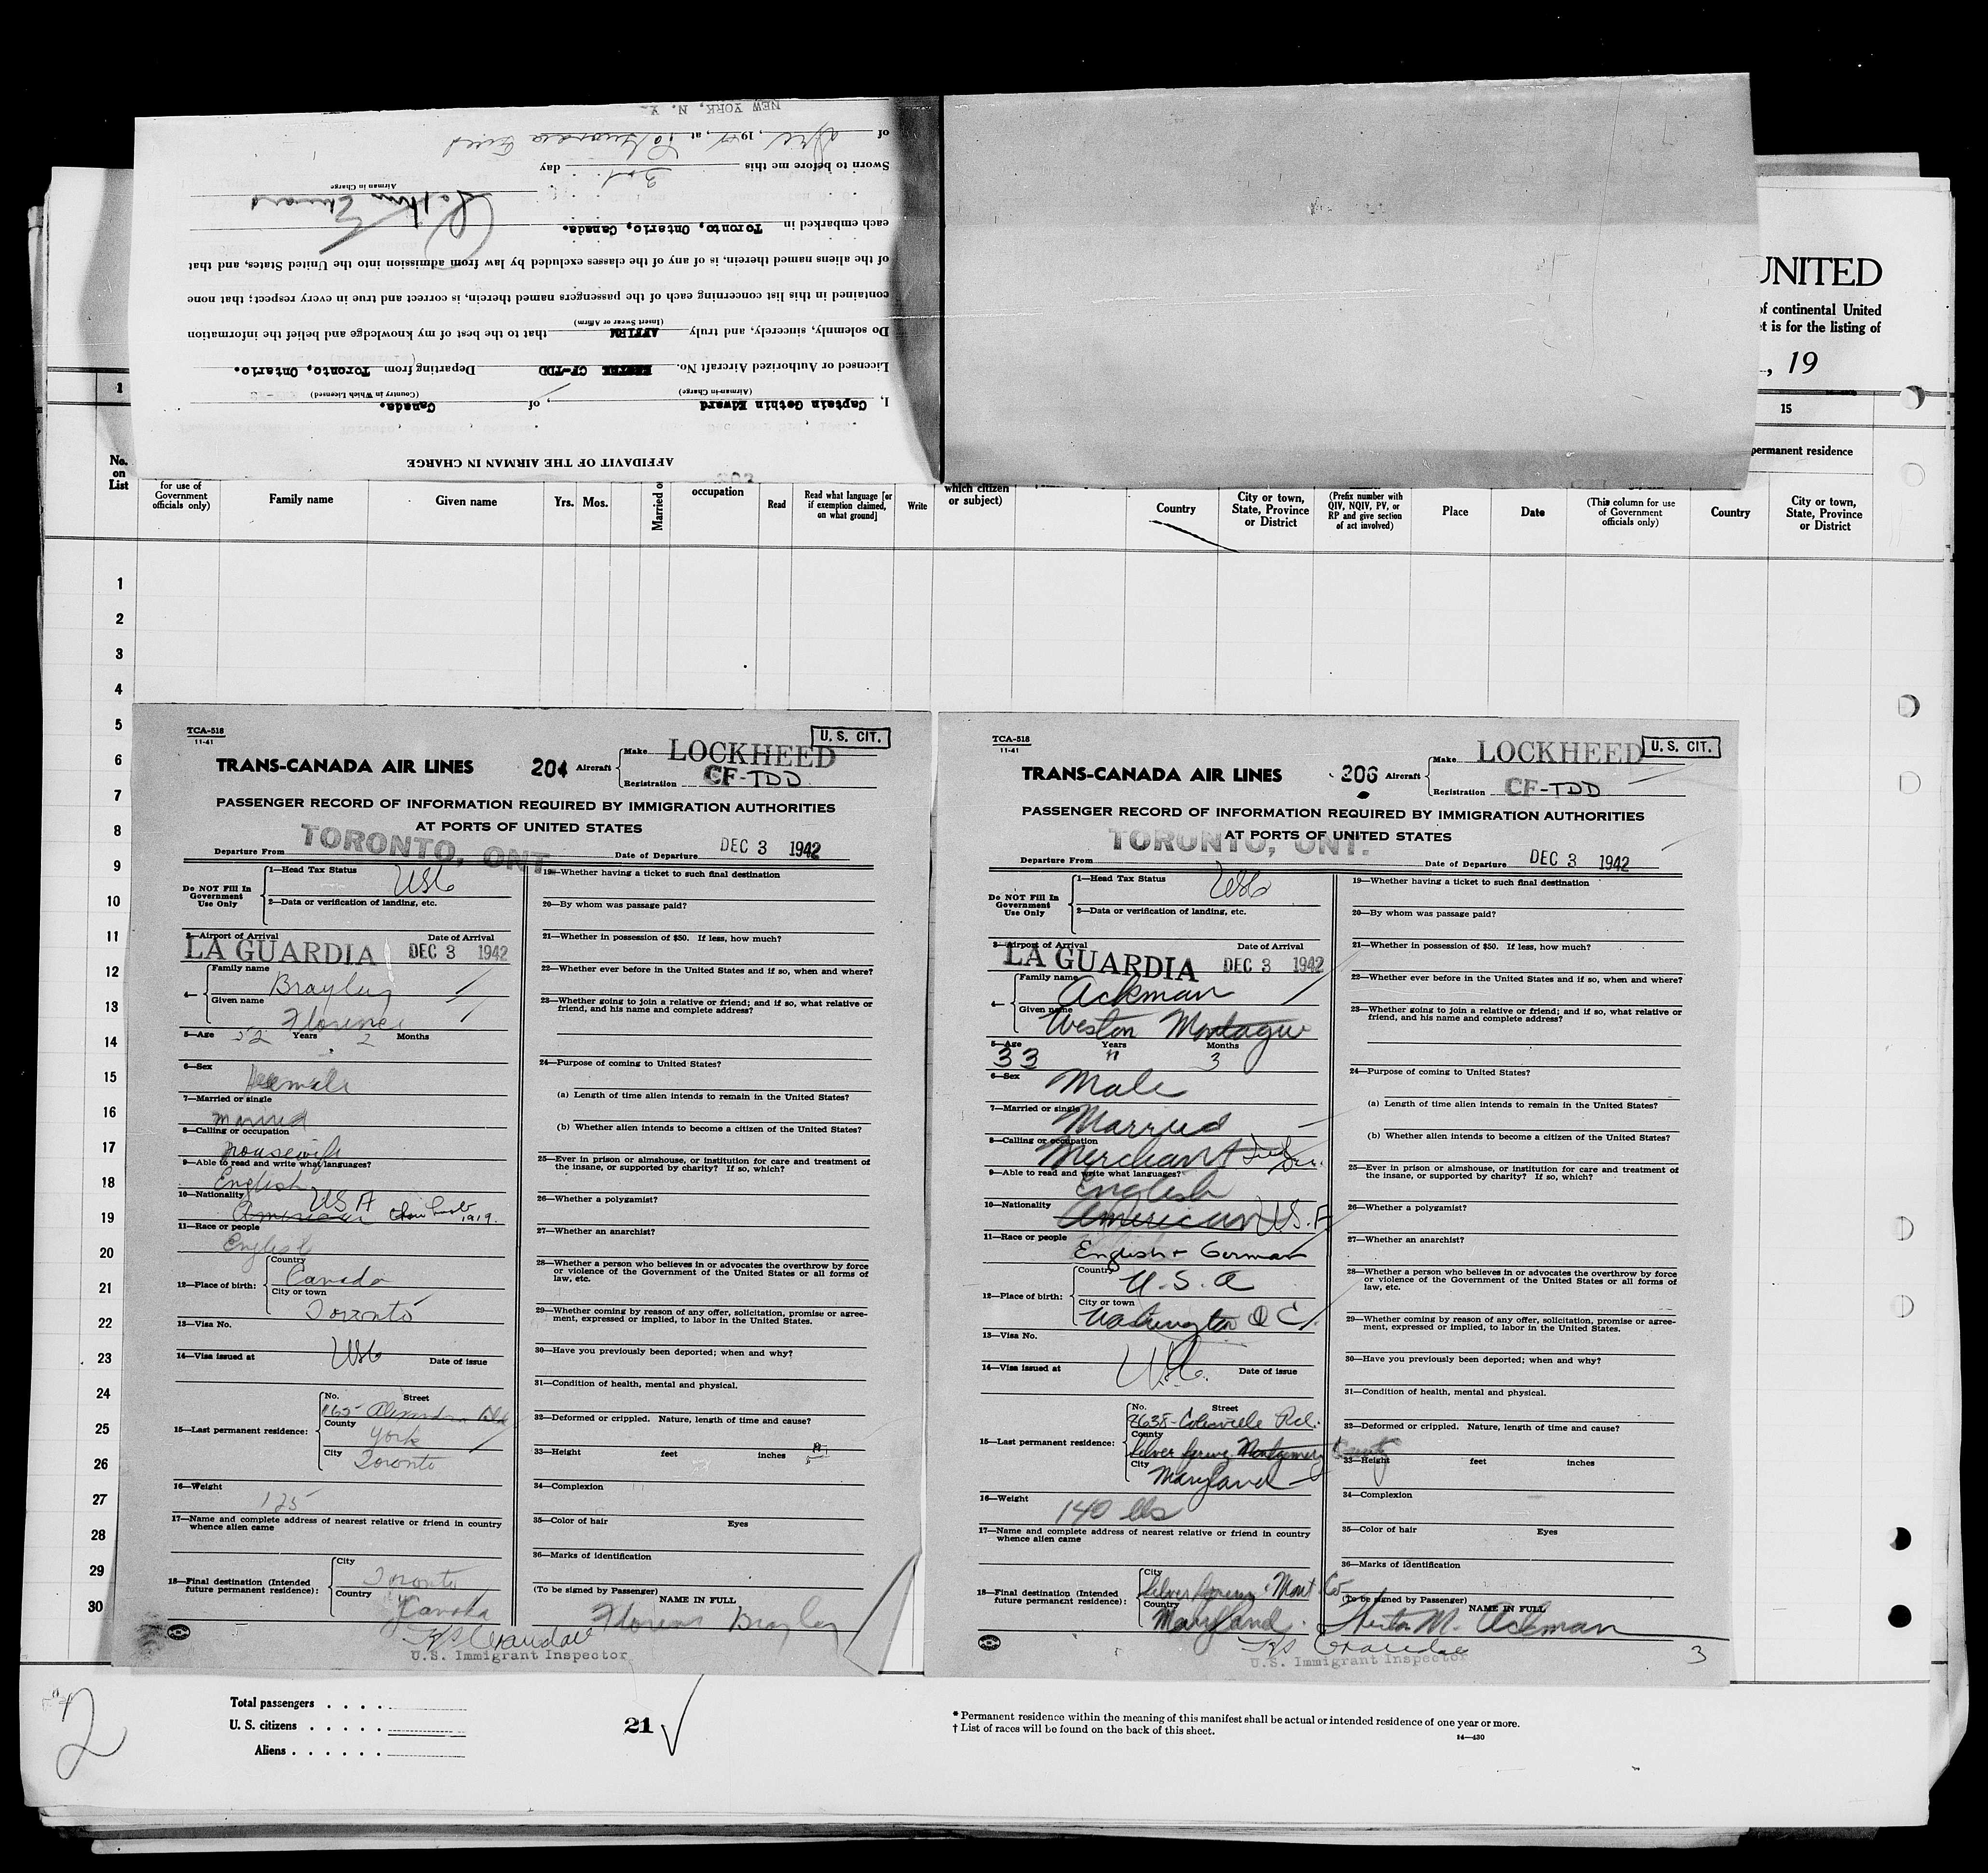 AFFIDAVIT OF THE AIRMAN IN CHARGE
I, Captain Gethin Edward, of Canada.
(Airman-in-Charge) (Country in Which Licensed)
Licensed or Authorized Aircraft No. CF-TDD Departing from Toronto, Ontario.
Do solemnly, sincerely, and truly AFFIRM that to the best of my knowledge and belief the information
(Insert Swear or Affirm)
contained in this list concerning each of the passengers named therein, is correct and true in every respect; that none
of the aliens named therein, is of any of the classes excluded by law from admission into the United States, and that
each embarked in Toronto, Ontario, Canada.
Airman in Charge
Sworn to before me this 3rd day
of Dec, 19 , at
NEW YORK, N. Y.
UNITED
of continental United
et is for the listing of
, 19
1
15
permanent residence
No. on List
for use of Government officials only)
Family name
Given name
Yrs. Mos.
Married o
occupation
Read
Read what language [or if exemption claimed, on what ground]
Write
which citizen or subject)
Country
City or town, State, Province or District
(Prefix number with QIV, NQIV, PV, or RP and give section of act involved)
Place
Date
(This column for use of Government officials only)
Country
City or town, State, Province or District
1
2
3
4
5
6
7
8
9
10
11
12
13
14
15
16
17
18
19
20
21
22
23
24
25
26
27
28
29
30
TCA-518
11-41
U. S. CIT.
TRANS-CANADA AIR LINES 204 Aircraft Make LOCKHEED
Registration CF-TDD
PASSENGER RECORD OF INFORMATION REQUIRED BY IMMIGRATION AUTHORITIES
AT PORTS OF UNITED STATES
Departure From TORONTO, ONT Date of Departure DEC 3 1942
Do NOT Fill In Government Use Only
1—Head Tax Status USC
2—Data or verification of landing, etc.
3—Airport of Arrival Date of Arrival
LA GUARDIA DEC 3 1942
4— Family name Brayley
Given name Florence
5—Age 52 Years 2 Months
6—Sex Female
7—Married or single
Married
8—Calling or occupation
Housewife
9—Able to read and write what languages?
English
10—Nationality USA
American 1919.
11—Race or people
English
12—Place of birth: Country Canada
City or town
Toronto
13—Visa No.
USC
14—Visa issued at Date of issue
15—Last permanent residence: No. Street
County
York
City Toronto
16—Weight
125
17—Name and complete address of nearest relative or friend in country whence alien came
18—Final destination (Intended future permanent residence): City
Toronto
Country
Canada
U.S. Immigrant Inspector
19—Whether having a ticket to such final destination
20—By whom was passage paid?
21—Whether in possession of $50. If less, how much?
22—Whether ever before in the United States and if so, when and where?
23—Whether going to join a relative or friend; and if so, what relative or friend, and his name and complete address?
24—Purpose of coming to United States?
(a) Length of time alien intends to remain in the United States?
(b) Whether alien intends to become a citizen of the United States?
25—Ever in prison or almshouse, or institution for care and treatment of the insane, or supported by charity? If so, which?
26—Whether a polygamist?
27—Whether an anarchist?
28—Whether a person who believes in or advocates the overthrow by force or violence of the Government of the United States or all forms of law, etc.
29—Whether coming by reason of any offer, solicitation, promise or agreement, expressed or implied, to labor in the United States.
30—Have you previously been deported; when and why?
31—Condition of health, mental and physical.
32—Deformed or crippled. Nature, length of time and cause?
33—Height feet inches
34—Complexion
35—Color of hair Eyes
36—Marks of identification
(To be signed by Passenger) NAME IN FULL
Florence Brayley
TCA-518
11-41
U. S. CIT.
TRANS-CANADA AIR LINES 206 Aircraft Make LOCKHEED
Registration CF-TDD
PASSENGER RECORD OF INFORMATION REQUIRED BY IMMIGRATION AUTHORITIES
AT PORTS OF UNITED STATES
Departure From TORONTO, ONT. Date of Departure DEC 3 1942
Do NOT Fill In Government Use Only
1—Head Tax Status USC
2—Data or verification of landing, etc.
3—Airport of Arrival Date of Arrival
LA GUARDIA DEC 3 1942
4— Family name Ackman
Given name Weston Montague
5—Age 33 Years 3 Months
6—Sex Male
7—Married or single
Married
8—Calling or occupation
Merchant
9—Able to read and write what languages?
English
10—Nationality
American U.S.A
11—Race or people
English + German
12—Place of birth: Country U.S.A
City or town
Washington D C
13—Visa No.
USC.
14—Visa issued at Date of issue
15—Last permanent residence: No. Street
8638-Colesville Rd.
County
Silver Spring Montgomery County
City
Maryland
16—Weight 140 lbs
17—Name and complete address of nearest relative or friend in country whence alien came
18—Final destination (Intended future permanent residence): City
Silver Spring, Mont Co
Country
Maryland.
U.S. Immigrant Inspector
19—Whether having a ticket to such final destination
20—By whom was passage paid?
21—Whether in possession of $50. If less, how much?
22—Whether ever before in the United States and if so, when and where?
23—Whether going to join a relative or friend; and if so, what relative or friend, and his name and complete address?
24—Purpose of coming to United States?
(a) Length of time alien intends to remain in the United States?
(b) Whether alien intends to become a citizen of the United States?
25—Ever in prison or almshouse, or institution for care and treatment of the insane, or supported by charity? If so, which?
26—Whether a polygamist?
27—Whether an anarchist?
28—Whether a person who believes in or advocates the overthrow by force or violence of the Government of the United States or all forms of law, etc.
29—Whether coming by reason of any offer, solicitation, promise or agreement, expressed or implied, to labor in the United States.
30—Have you previously been deported; when and why?
31—Condition of health, mental and physical.
32—Deformed or crippled. Nature, length of time and cause?
33—Height feet inches
34—Complexion
35—Color of hair Eyes
36—Marks of identification
(To be signed by Passenger) NAME IN FULL
Weston M. Ackman
3
2
Total passengers . . . .
U. S. citizens . . . . .
Aliens . . . . . .
21
* Permanent residence within the meaning of this manifest shall be actual or intended residence of one year or more.
† List of races will be found on the back of this sheet.
14—430